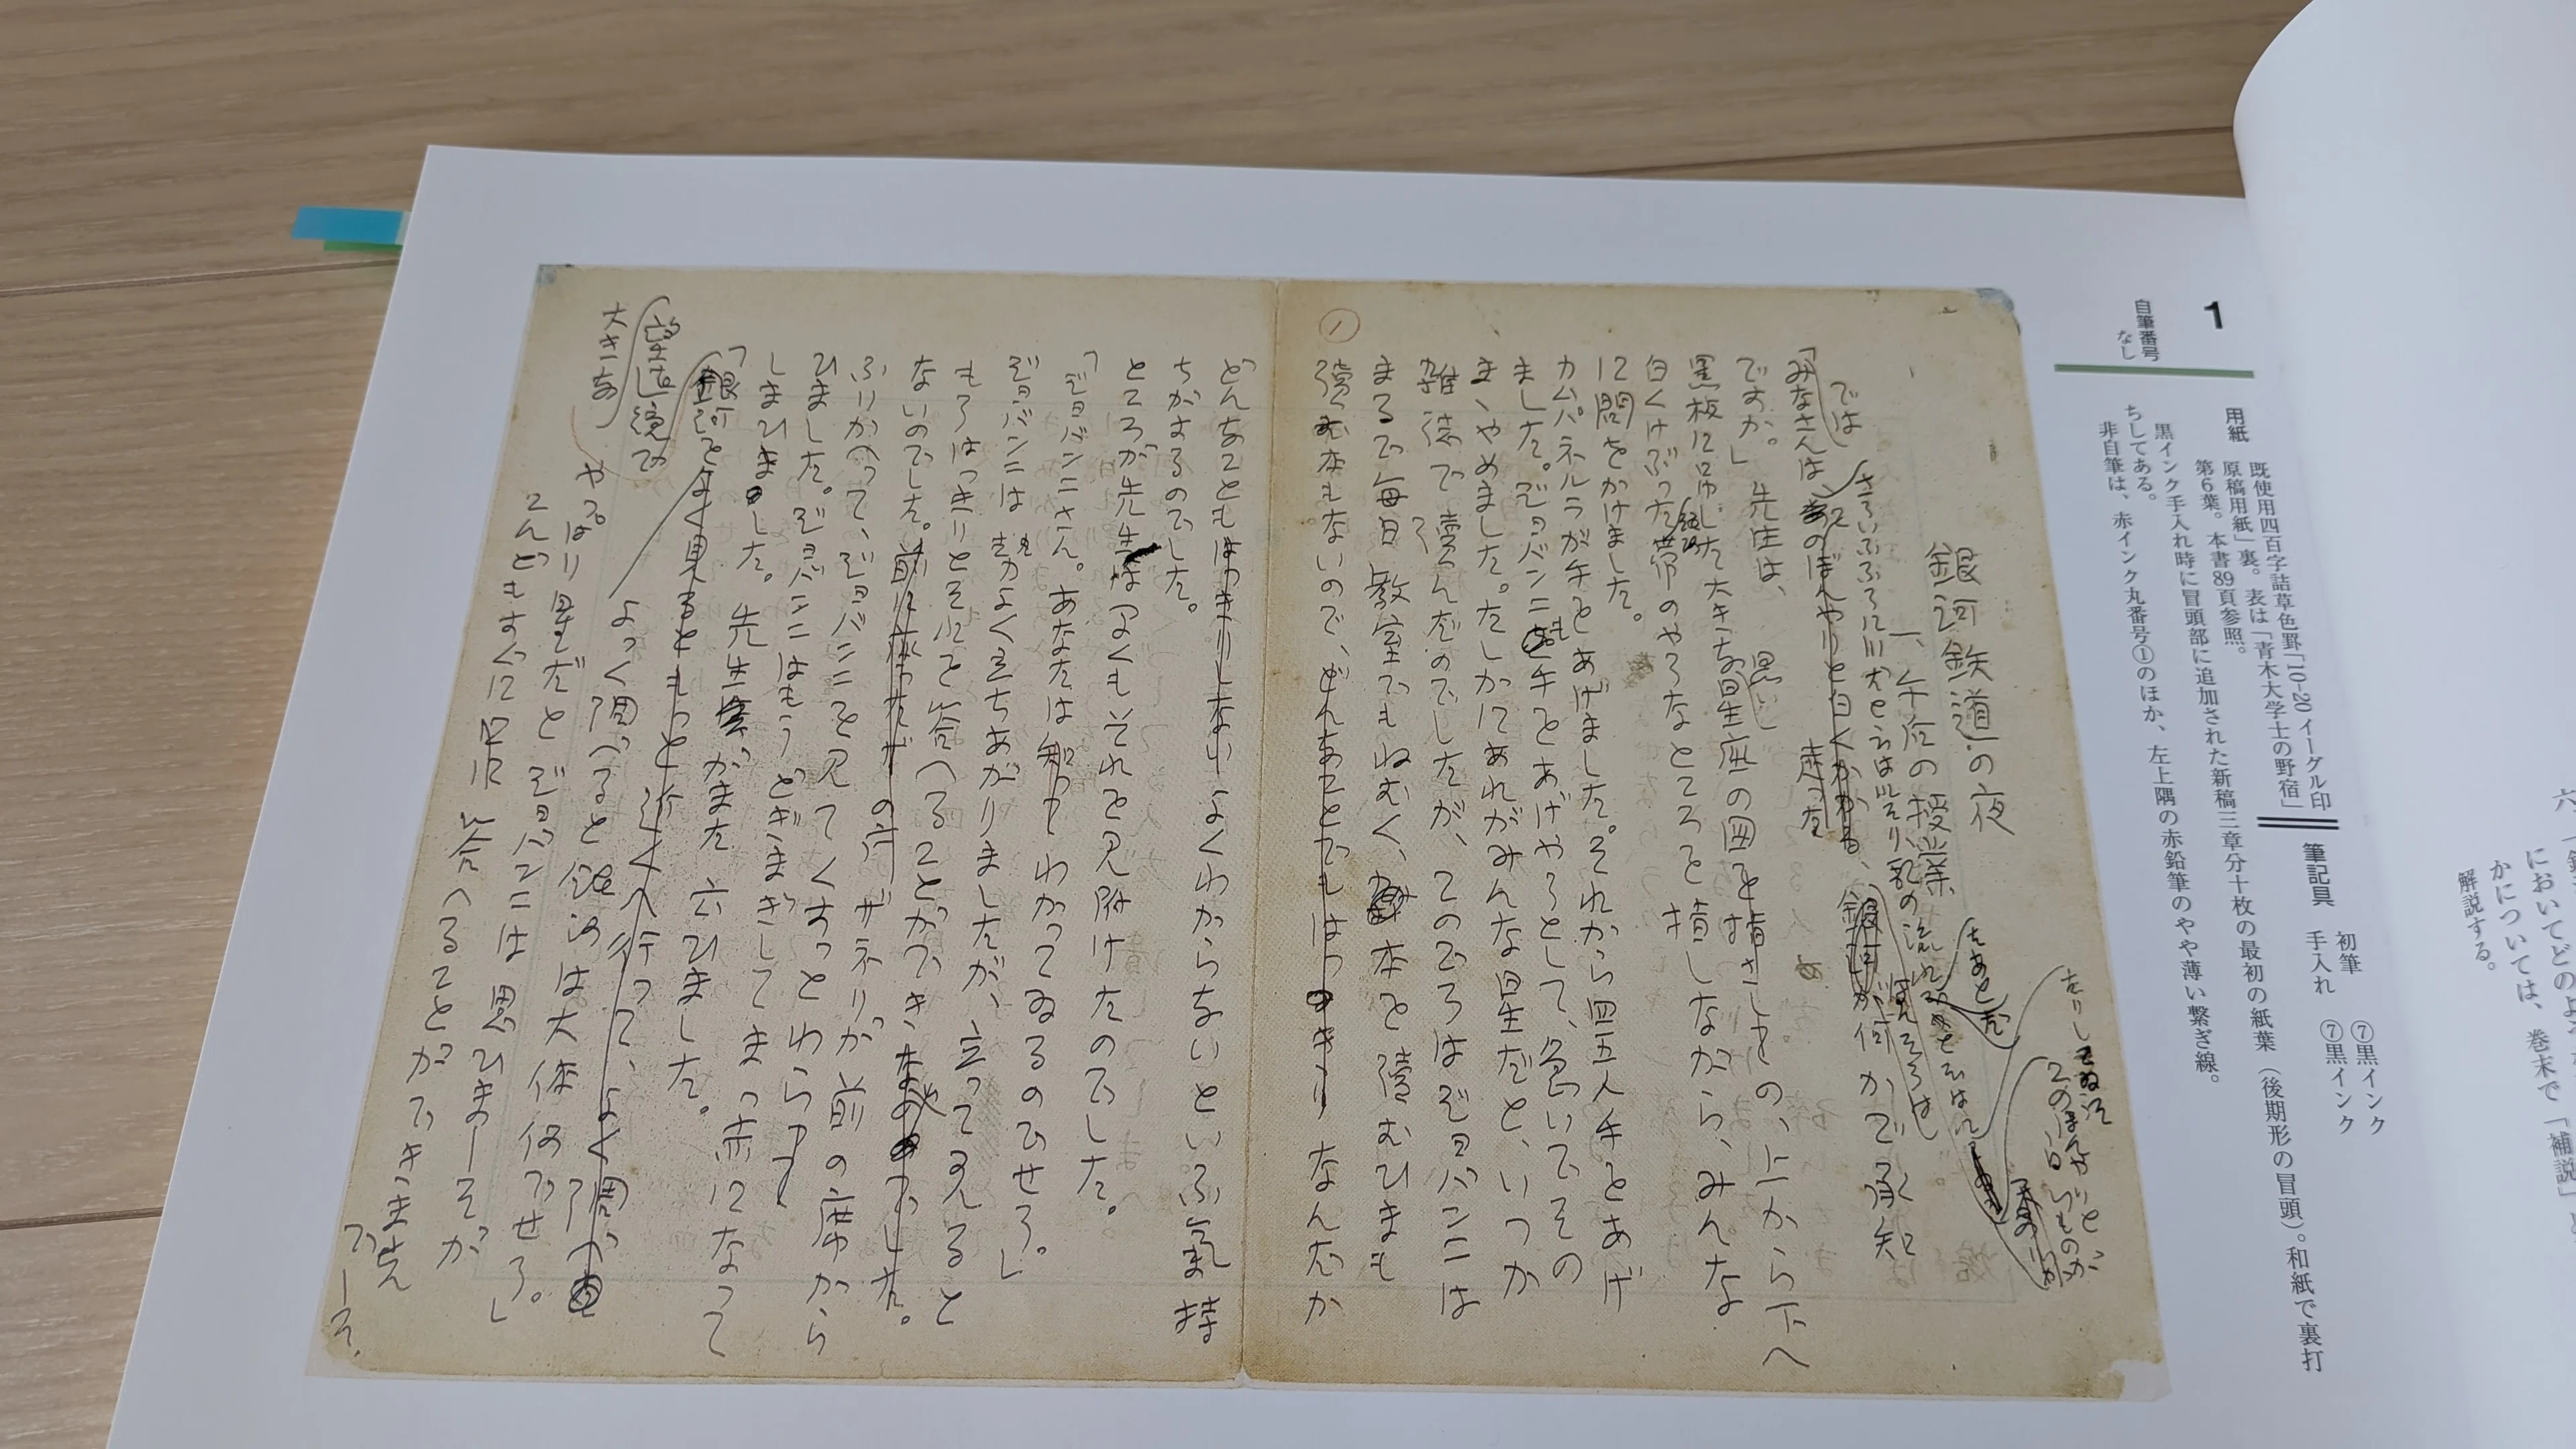 1
自筆番号
なし
用紙
既使用四百字詰草色罫「10-20 イーグル印
原稿用紙」裏。表は「青木大学士の野宿」
第6葉。本書89頁参照。
筆記具
初筆 ⑦黒インク
手入れ ⑦黒インク
黒インク手入れ時に冒頭部に追加された新稿三章分十枚の最初の紙葉(後期形の冒頭)。和紙で裏打
ちしてある。
非自筆は、赤インク丸番号①のほか、左上隅の赤鉛筆のやや薄い繋ぎ線。
においてどのよ
かについては、巻末で「補説」
解説する。
銀河鉄道の夜
一、午后の授業
では
さういふふうに川だと云はれたり、乳の流れ
たあとだ
と云はれ
たりしてゐた
このぼんやりと
白いものが
「みなさんは、
ほんたうは
何かご承知
ですか。」先生は、
黒い
座の図を指さしながら、上から下へ
黒板に吊した大きな
白くけぶった
銀河
帯のやうなところを指しながら、みんな
に問をかけました。
カムパネルラが手をあげました。それから四五人手をあげ
ました。ジョバンニも手をあげやうとして、急いでその
まゝやめました。たしかにあれがみんな星だと、いつか
雑誌で讀んだのでしたが、このごろはジョバンニは
まるで毎日教室でもねむく、本を讀むひまも
讀む本もないので、なんだか
どんなことも よくわからないといふ氣持
ちがするのでした。
ところが先生は早くもそれを見附けたのでした。
「ジョバンニさん。あなたは わかってゐるのでせう。」
ジョバンニは よく立ちあがりましたが、立って見ると
もうはっきりとそれを答へることができ
ないのでした。 ザネリが前の席から
ふりかへって、ジョバンニを見てくすっとわらひ
ひました。ジョバンニはもうどぎまぎしてまっ赤になって
しまひました。先生がまた云ひました。
「大きな
望遠鏡で
銀河を
よっく調べると銀河は大体何でせう。」
やっぱり星だとジョバンニは思ひましたが
こんどもすぐに 答へることができません
でした。